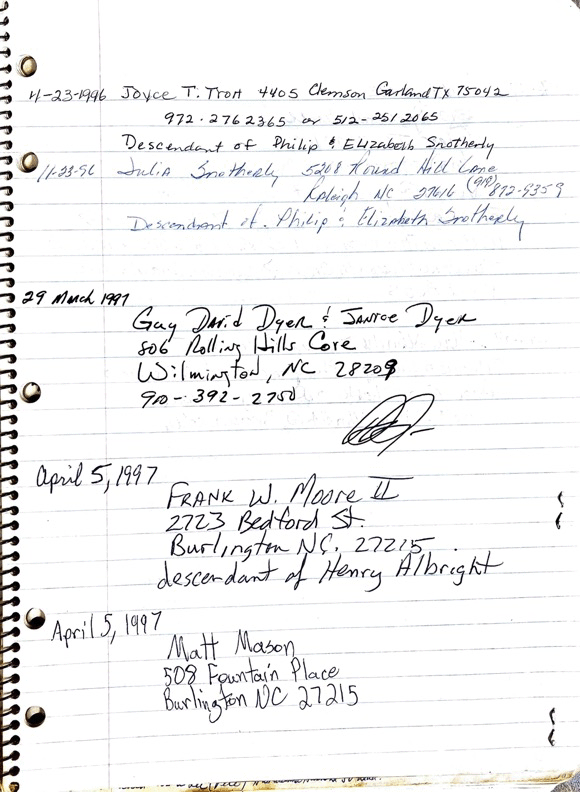 11-23-1996 Joyce T. Trott 4405 Clemson Garland TX 75042
972-2762365 or 512-251 2065
Descendant of Philip & Elizabeth Snotherly
11-23-96 Julia Snotherly 5208 Round Hill Lane
Raleigh NC 27616 (919) 872-9359
Descendant of Philip & Elizabeth Snotherly
29 March 1997
Guy David Dyer & Janice Dyer
806 Rolling Hills Cove
Wilmington, NC 28209
910-392-2750
April 5, 1997
FRANK W. Moore II
2723 Bedford St.
Burlington NC. 27215
descendant of Henry Albright
April 5, 1997
Matt Mason
508 Fountain Place
Burlington NC 27215